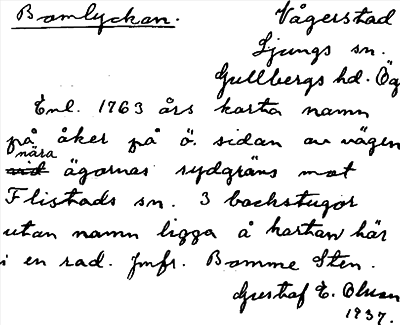 Bomlyckan. Vågerstad
Ljungs sn.
Gullbergs hd. Ög
Enl. 1763 års karta namn
på åker på ö. sidan av vägen
nära
vid ägornas sydgräns mot
Flistads sn. 3 backstugor
utan namn ligga å kartan här
i en rad. Jmfr. Bomme Sten.
Gustaf E. Olsson
1937.